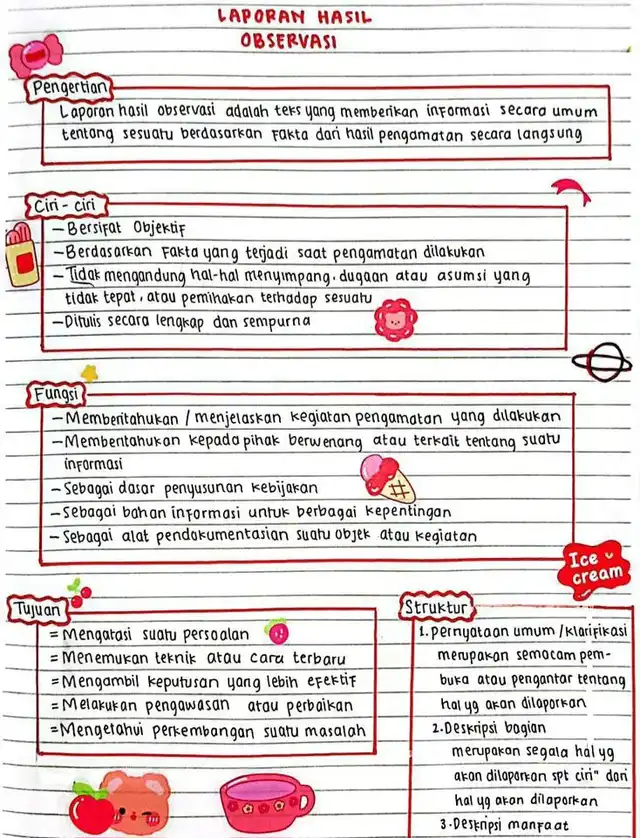 LAPORAN HASIL
OBSERVASI
Pengertian
Laporan hasil observasi adalah teks yang memberikan informasi secara umum
tentang sesuatu berdasarkan fakta dari hasil pengamatan secara langsung
Ciri - ciri
- Bersifat Objektif
- Berdasarkan fakta yang terjadi saat pengamatan dilakukan
- Tidak mengandung hal-hal menyimpang, dugaan atau asumsi yang
tidak tepat, atau pemihakan terhadap sesuatu
- Ditulis secara lengkap dan sempurna
Fungsi
- Memberitahukan / menjelaskan kegiatan pengamatan yang dilakukan
- Memberitahukan kepada pihak berwenang atau terkait tentang suatu
informasi
- Sebagai dasar penyusunan kebijakan
- Sebagai bahan informasi untuk berbagai kepentingan
- Sebagai alat pendokumentasian suatu objek atau kegiatan
Ice
cream
Tujuan
= Mengatasi suatu persoalan
= Menemukan teknik atau cara terbaru
= Mengambil keputusan yang lebih efektif
= Melakukan pengawasan atau perbaikan
= Mengetahui perkembangan suatu masalah
Struktur
1. Pernyataan umum / klarifikasi
merupakan semacam pem-
buka atau pengantar tentang
hal yg akan dilaporkan
2. Deskripsi bagian
merupakan segala hal yg
akan dilaporkan spt ciri" dari
hal yg akan dilaporkan
3. Deskripsi manfaat